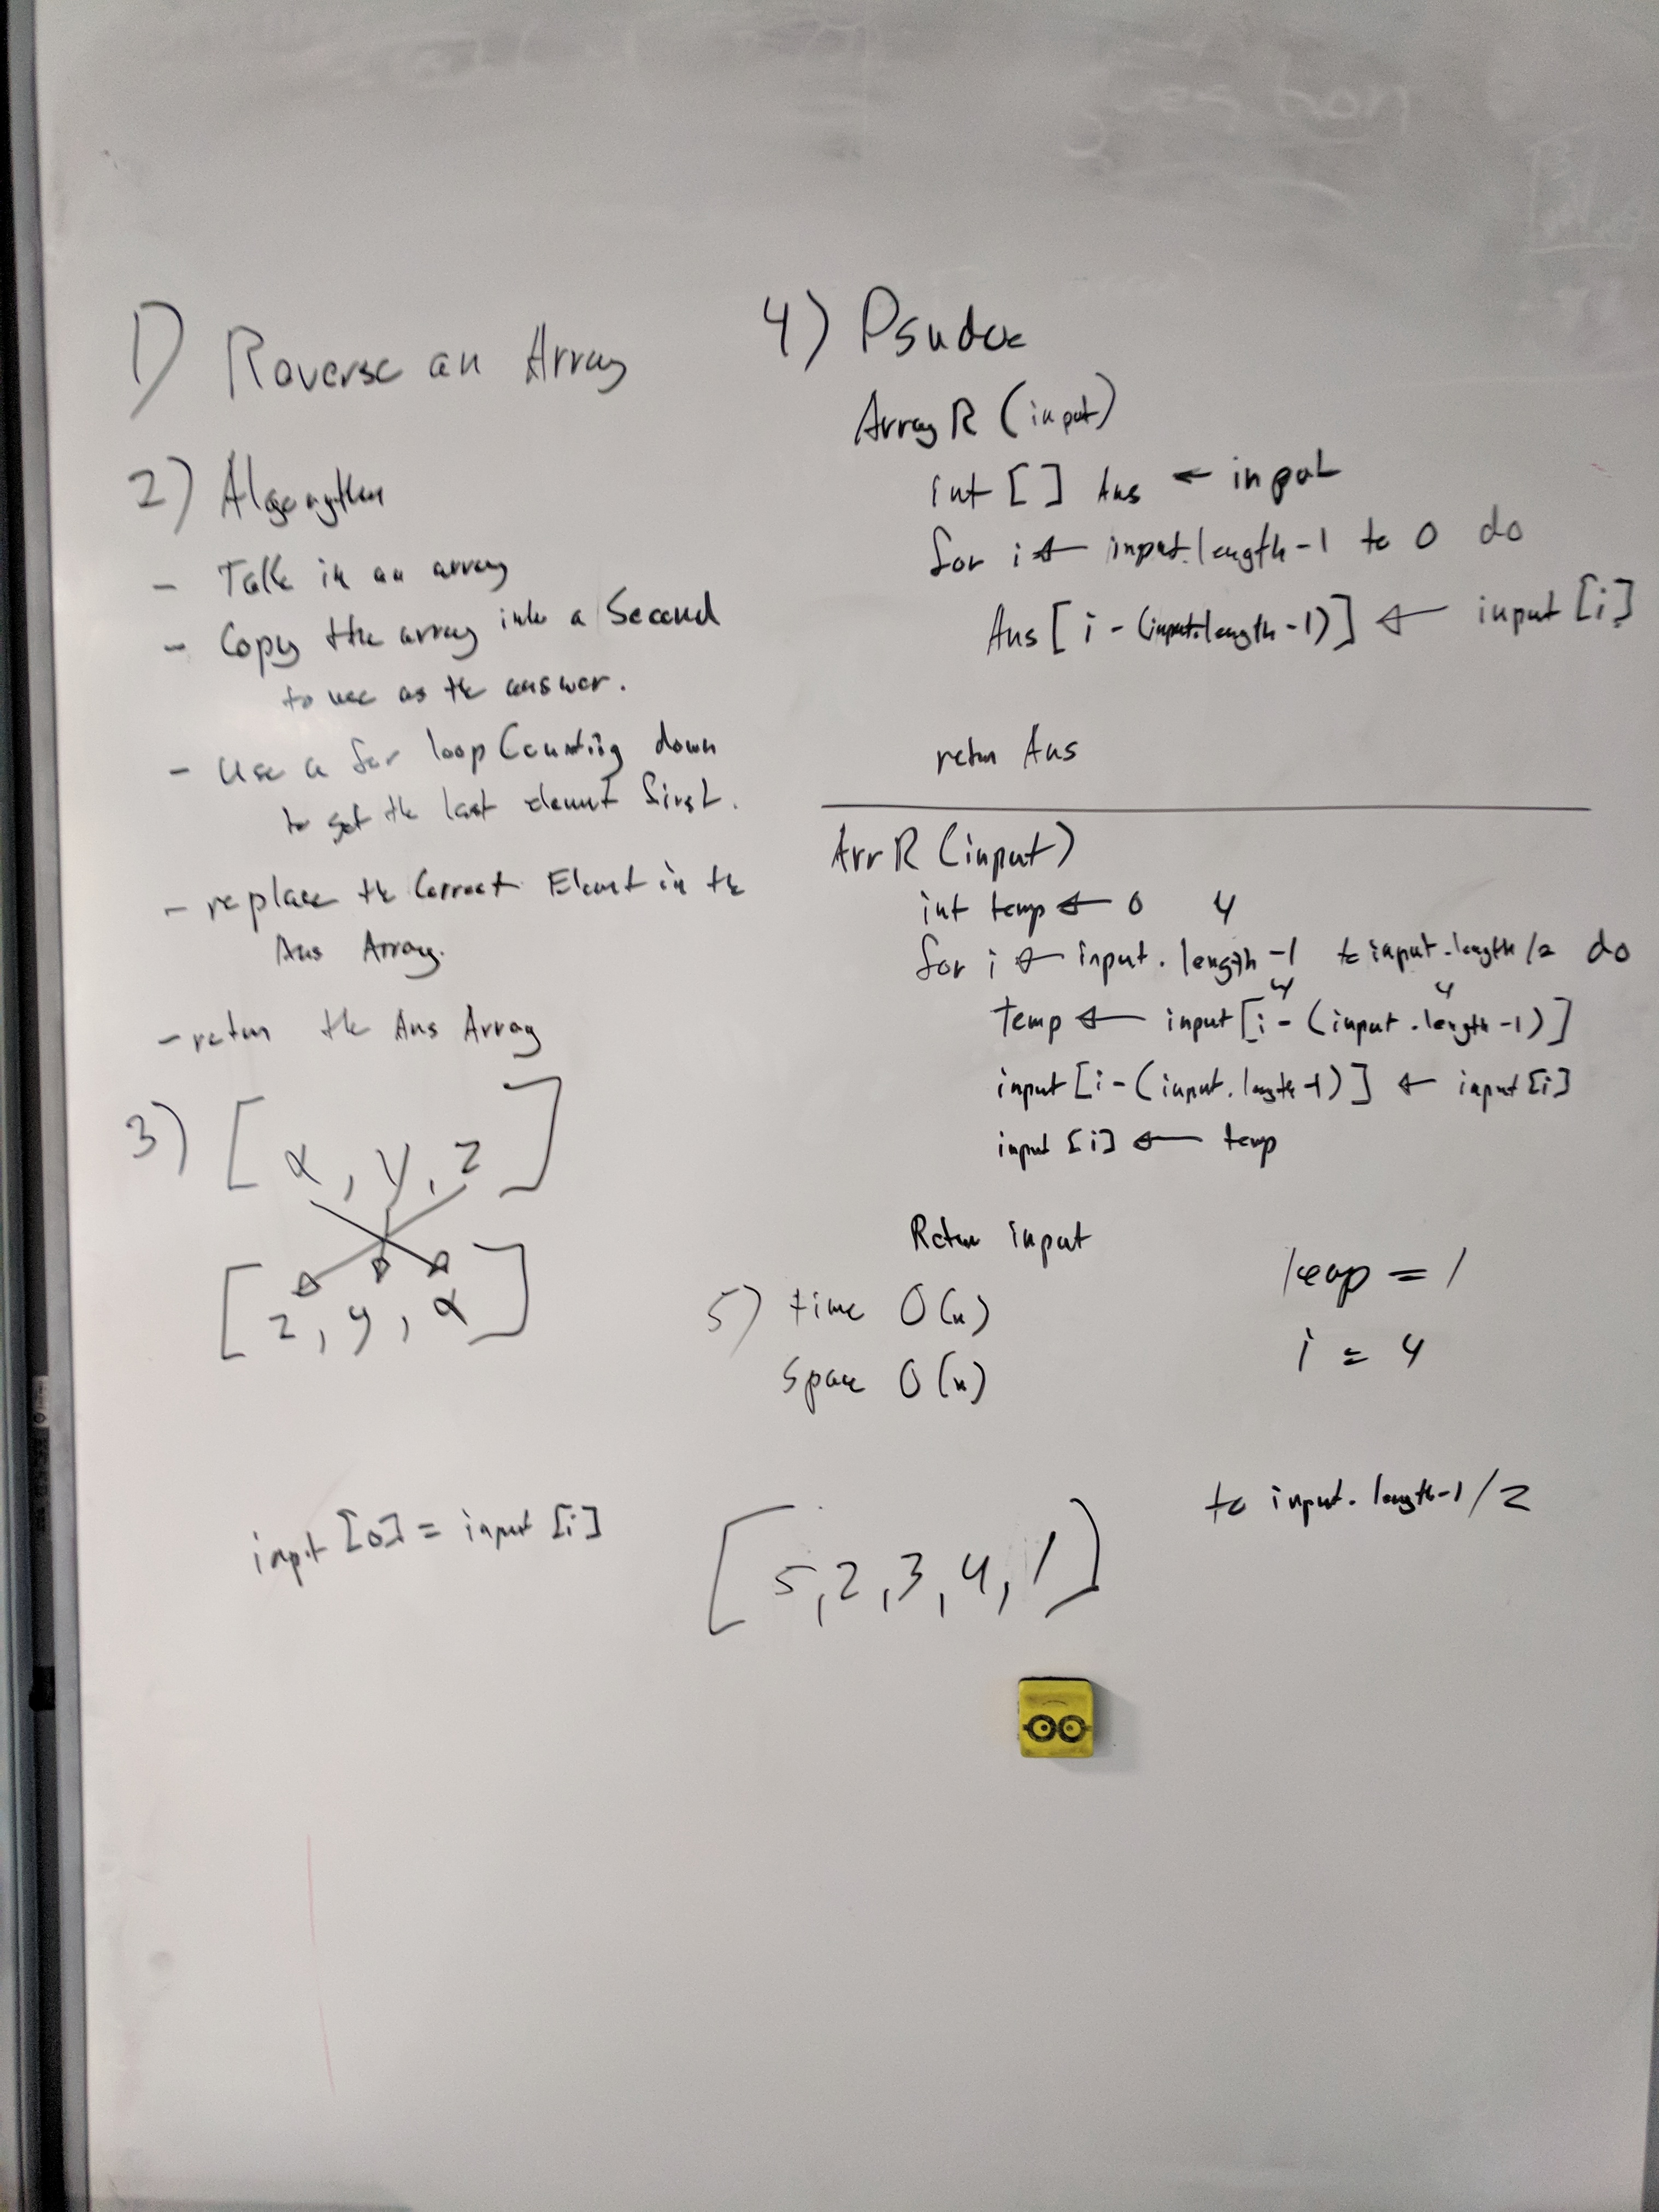 1) Reverse an Array
2) Algorythm
- Take in an array
- Copy the array into a Second
to use as the answer.
- Use a for loop Counting down
to get the last element first.
- replace the Correct Element in the
Ans Array.
- return the Ans Array
3) [x, y, z]
[z, y, x]
4) Psudoe
ArrayR (input)
int [] Ans ← input
for i ← input.length-1 to 0 do
Ans[i - (input.length-1)] ← input[i]
return Ans
ArrR (input)
int temp ← 0 4
for i ← input.length-1 to input.length/2 do
4 4
temp ← input[i - (input.length-1)]
input[i - (input.length-1)] ← input[i]
input[i] ← temp
Return input
5) time O(n)
Space O(n)
temp = 1
i = 4
input[0] = input[i]
[5,2,3,4,1]
to input.length-1/2